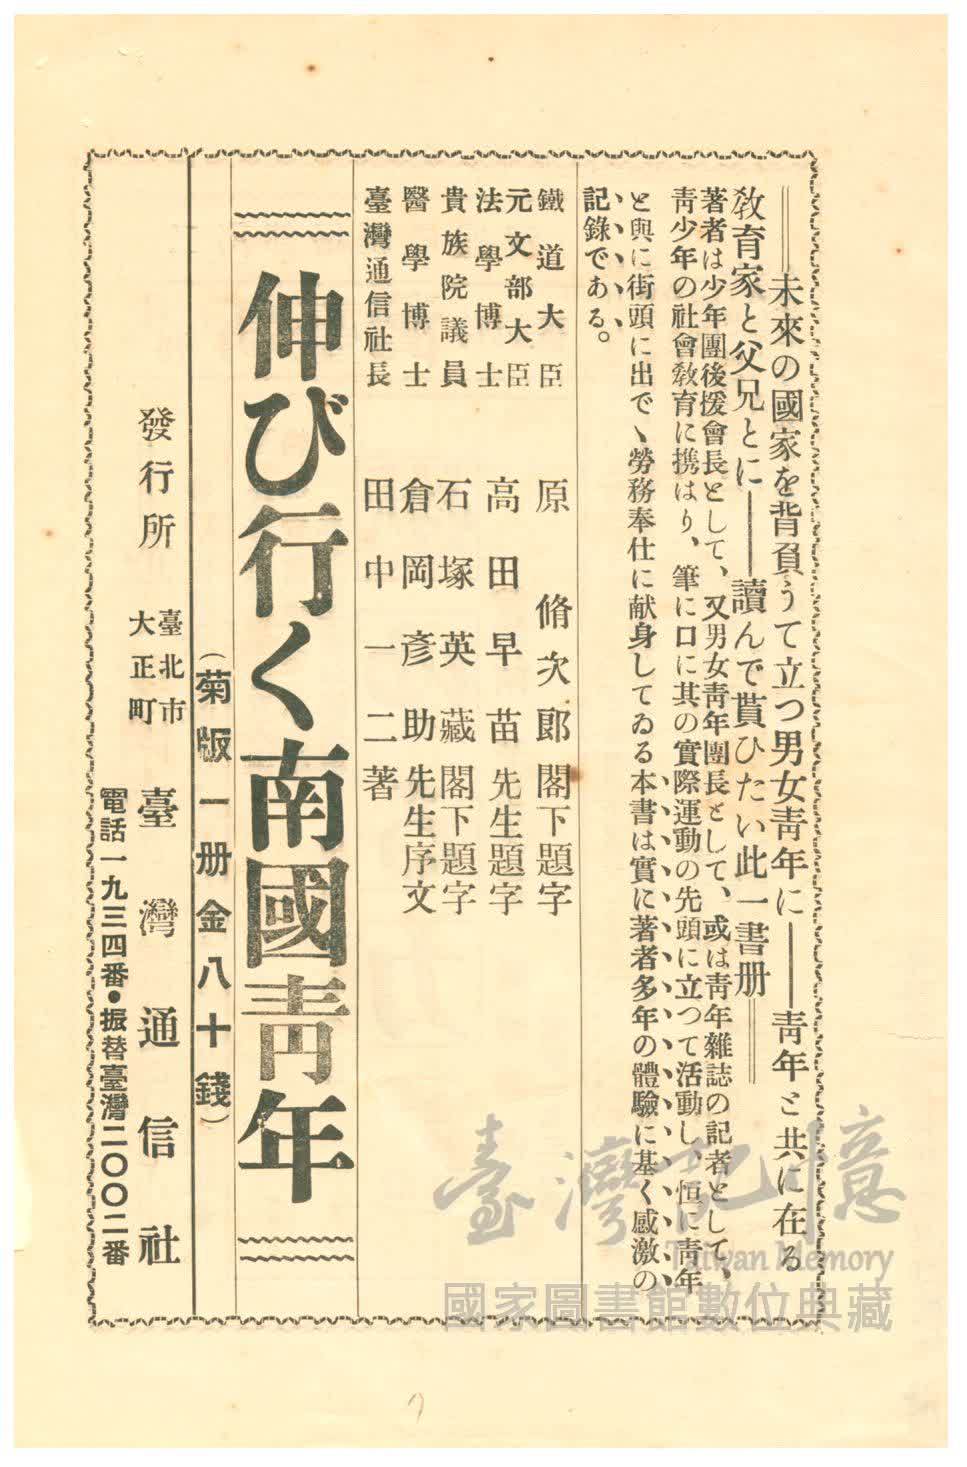 ══未來の國家を背負うて立つ男女靑年に──靑年と共に在る
敎育家と父兄とに──讀んで貰ひたい此一書册══
著者は少年團後援會長として、又男女靑年團長として、或は靑年雜誌の記者として、
靑少年の社會敎育に携はり、筆に口に其の實際運動の先頭に立つて活動し、恒に靑年
と與に街頭に出で、勞務奉仕に献身してゐる本書は實に著者多年の體驗に基く感激の
記錄である。
鐵道大臣 原脩次郞閣下題字
元文部大臣
法學博士 高田早苗先生題字
貴族院議員 石塚英藏閣下題字
醫學博士 倉岡彥助先生序文
臺灣通信社長 田中一二著
伸び行く南國靑年
(菊版一册金八十錢)
發行所 臺北市大正町 臺灣通信社
電話一九三四番・振替臺灣二〇〇二番
臺灣記憶
Taiwan Memory
國家圖書館數位典藏